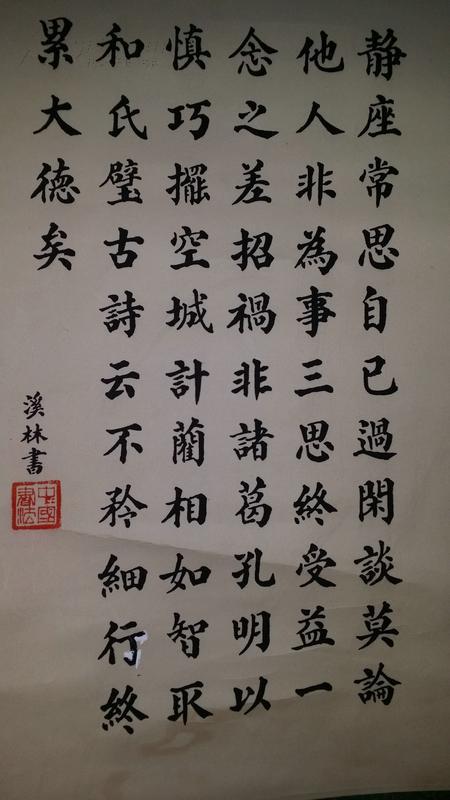 静座常思自已過閑談莫論
他人非為事三思終受益一
念之差招禍非諸葛孔明以
慎巧擺空城計藺相如智取
和氏璧古詩云不矜細行終
累大德矣
溪林書
中國書法